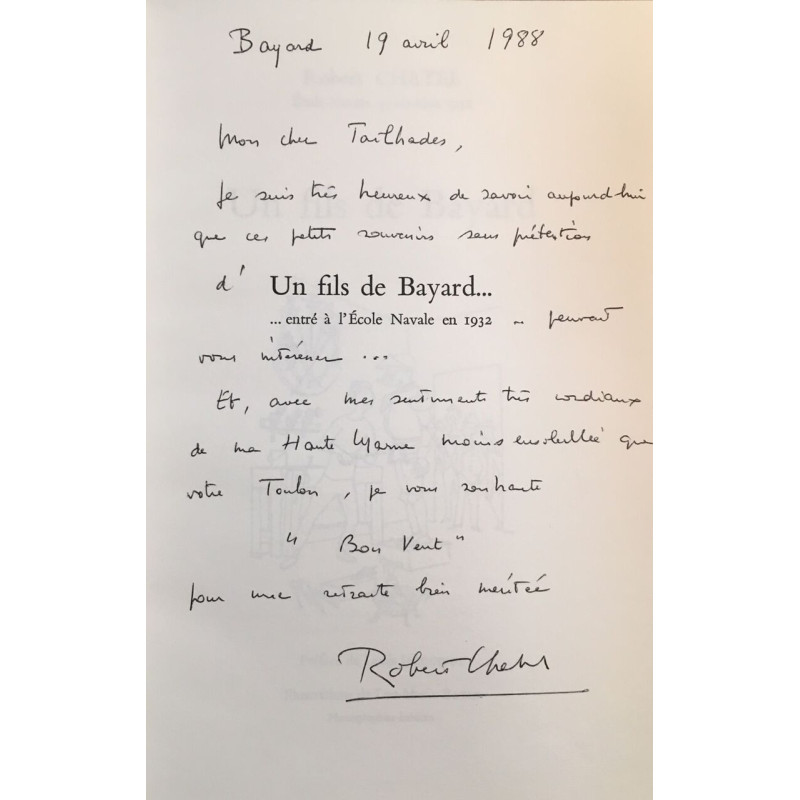 Bayard 19 avril 1988
Mon cher Tailhades,
Je suis très heureux de savoir aujourd'hui
que ces petits souvenirs sans prétention
d' Un fils de Bayard...
... entré à l'École Navale en 1932 .. peuvent
vous intéresser ...
Et, avec mes sentiments très cordiaux
de ma Haute Marne moins ensoleillée que
votre Toulon, je vous souhaite
" Bon Vent "
pour une retraite bien méritée
Robert Chatel